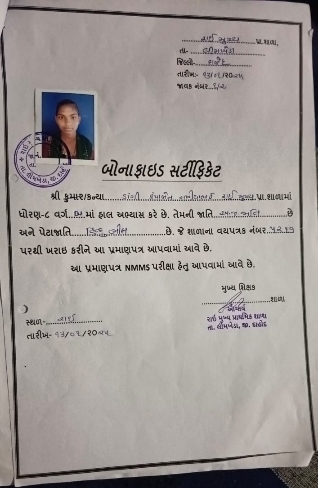 રાઈ મુખ્ય પ્રા.શાળા,
તા- લીમખેડા
જિલ્લો- દાહોદ
તારીખ:- ૧૩/૦૧/20૨૫
જાવક નંબર
બોનાફાઇડ સર્ટીફિકેટ
શ્રી કુમાર/કન્યા રાઈ મુખ્ય પ્રા શાળામાં
ધોરણ-૮ વર્ગ માં હાલ અભ્યાસ કરે છે. તેમની જાતિ છે
અને પેટાજાતિ હિન્દુ છે. જે શાળાના વયપત્રક નંબર
પરથી ખરાઇ કરીને આ પ્રમાણપત્ર આપવામાં આવે છે.
આ પ્રમાણપત્ર NMMS પરીક્ષા હેતુ આપવામાં આવે છે.
મુખ્ય શિક્ષક
શાળા
આચાર્ય
રાઈ મુખ્ય પ્રાથમિક શાળા
તા. લીમખેડા, જી. દાહોદ
સ્થળ:- રાઈ
તારીખ- ૧૩/૦૧/20૨૫